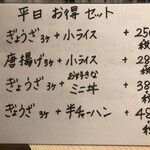 平日 お得 セット
ぎょうざ 3ケ + 小ライス + 250
税
唐揚げ 3ケ + 小ライス + 28
税
ぎょうざ 3ケ + お好きな ミニ丼 + 38
税
ぎょうざ 3ケ + 半チャーハン + 48
税